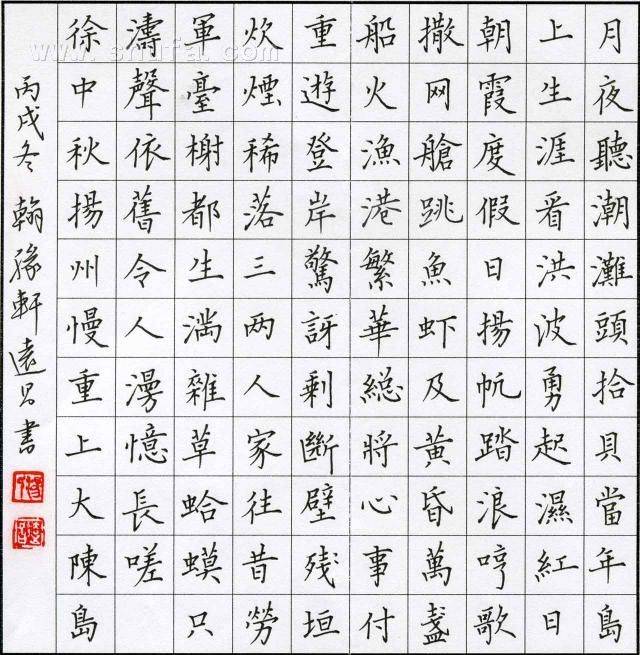 月夜聽潮灘頭拾貝當年島
上生涯看洪波勇起濕紅日
朝霞度假日揚帆踏浪哼歌
撒网艙跳魚虾及黃昏萬盞
船火漁港繁華總將心事付
重遊登岸驚訝剩斷壁残垣
炊煙稀落三两人家往昔勞
軍臺榭都生満雜草蛤蟆只
濤聲依舊令人漫憶長嗟
徐中秋揚州慢重上大陳島
丙戌冬翰緣軒遠書
www.shufa.com